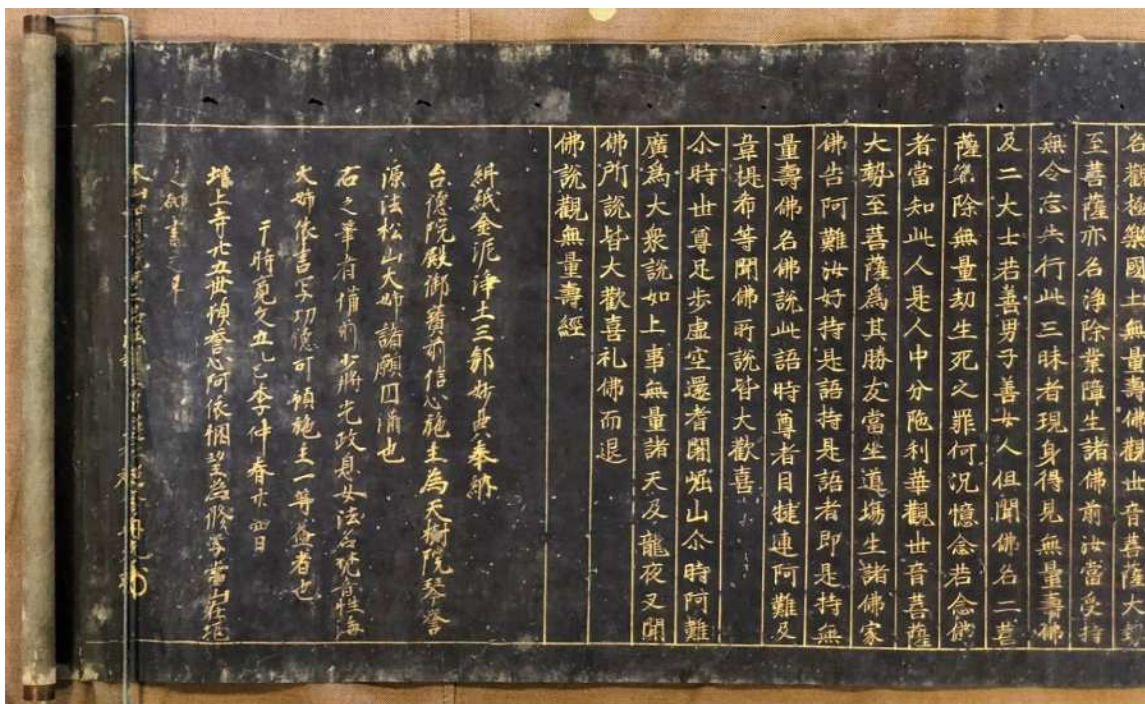 名觀極樂國土無量壽佛觀世音菩薩大勢
至菩薩亦名淨除業障生諸佛前汝當受持
無令忘失行此三昧者現身得見無量壽佛
及二大士若善男子善女人但聞佛名二菩
薩名除無量劫生死之罪何況憶念若念佛
者當知此人是人中分陁利華觀世音菩薩
大勢至菩薩為其勝友當坐道場生諸佛家
佛告阿難汝好持是語持是語者即是持無
量壽佛名佛說此語時尊者目揵連阿難及
韋提希等聞佛所說皆大歡喜
尒時世尊足步虛空還耆闍崛山尒時阿難
廣為大衆說如上事無量諸天及龍夜叉聞
佛所說皆大歡喜礼佛而退
佛說觀無量壽經
紺紙金泥淨土三部妙典奉納
台德院殿御寶前信心施主為天樹院琴譽
源法松山大姉諸願円滿也
石之筆者備前少將光政息女法名琉音性海
大姉依書写功德可頓施主一等益者也
于時寛文五乙巳季仲春廿四日
增上寺廿五世頓譽心阿依悃望為修写當山在地
之砌書之畢